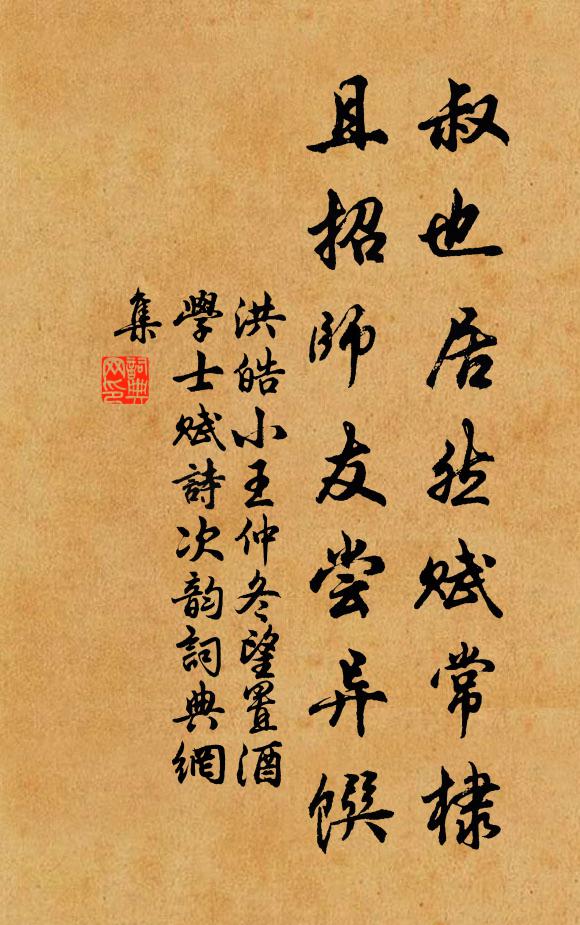 叔也居然赋常棣
且招师友尝异馔
洪皓小王仲冬望置酒
學士赋詩次韵詞典網
集
詞典
网印